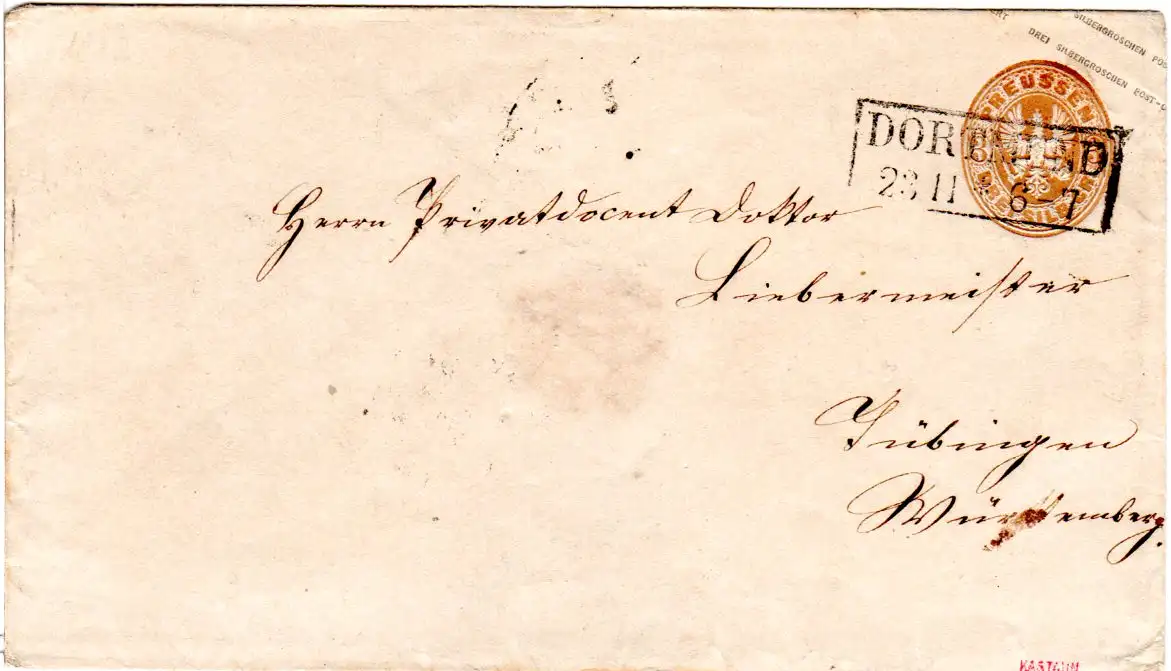 SILBERGROSCHEN POS
DREI SILBERGROSCHEN POST-C
PREUSSEN
DORTMUND
23 11 * 6-7
Herrn Privatdocent Doktor
Liebermeister
Tübingen
Württemberg.